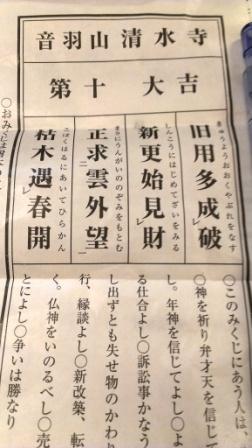 音羽山清水寺
第十 大吉
きゅうようおおくやぶれをなす
旧用多成破
しんこうにはじめてざいをみる
新更始見財
まさにうんがいののぞみをもとむ
正求雲外望
こぼくはるにあいてひらかん
枯木遇春開
○このみくじにあう人は
○神を祈り弁才天を信じて
し。年神を信じてよし○よ
る仕合よし○訴訟事かなう
し出ずとも失せ物のかわり
行、縁談よし○新改築、転
く。仏神をいのるべし○売
とによし○争いは勝なり
○おみくじは